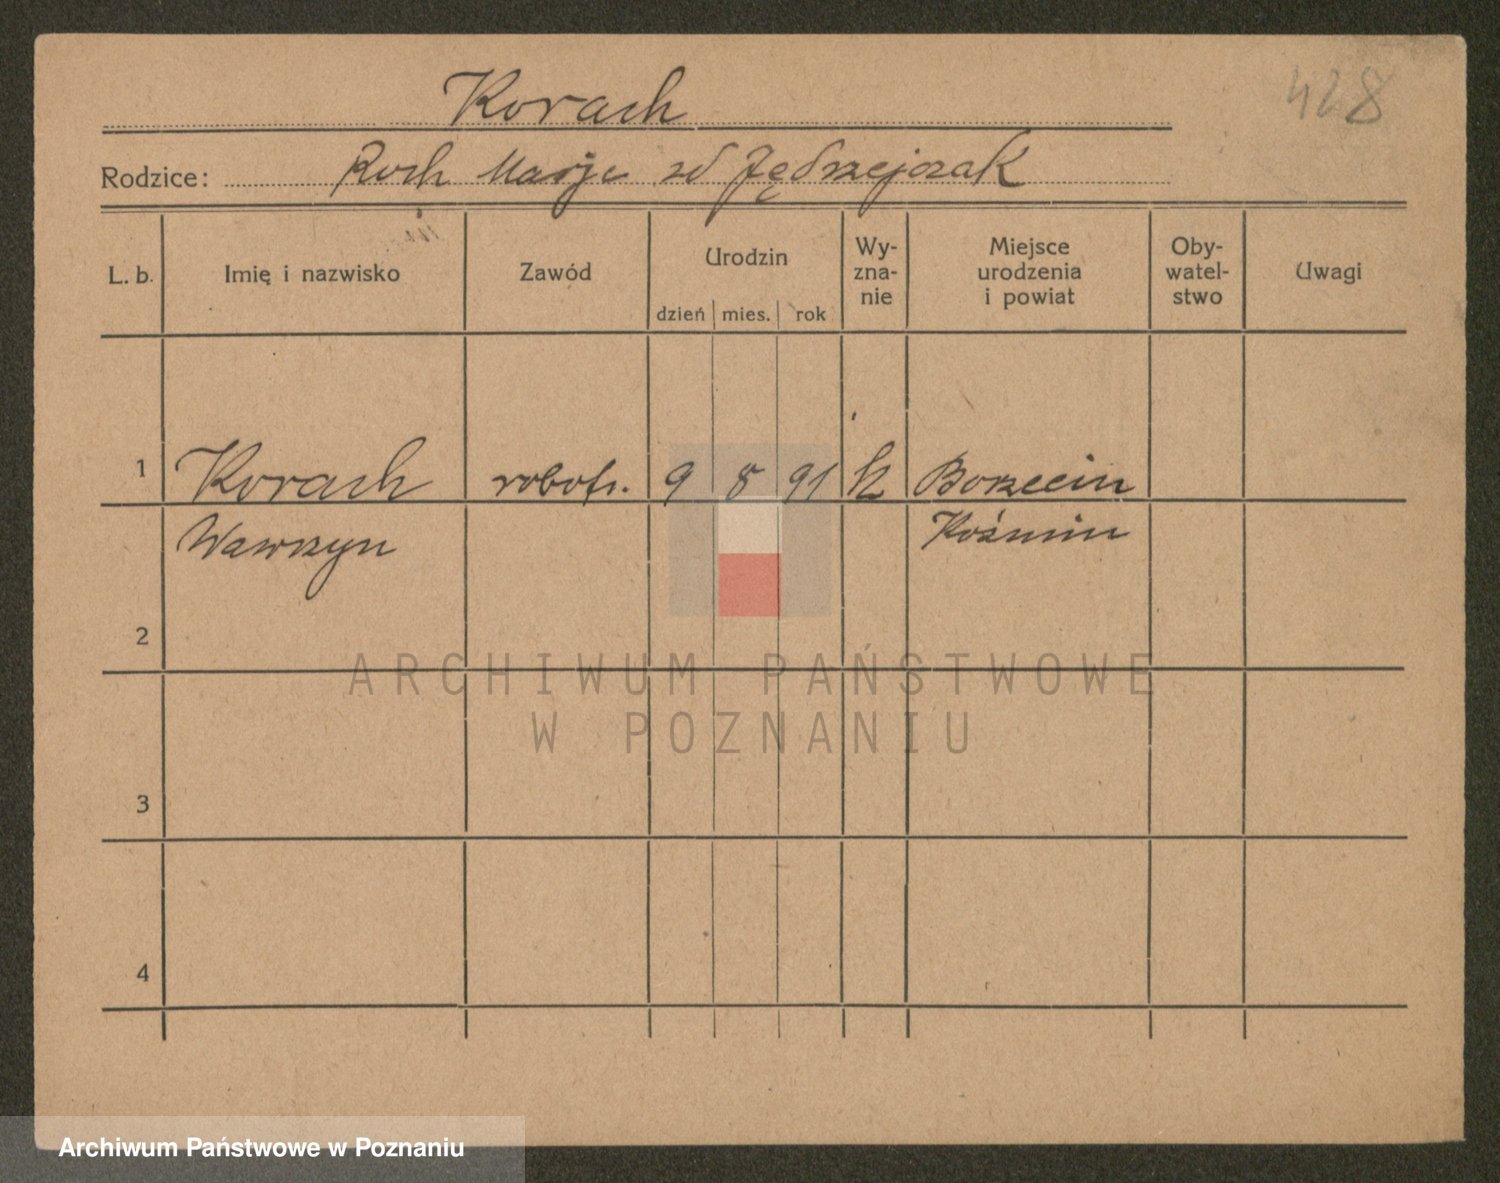 428
Korach
Rodzice: Roch Marja zd Jędrzejczak
L. b. Imię i nazwisko Zawód Urodzin dzień mies. rok Wy-zna-nie Miejsce urodzenia i powiat Oby-watel-stwo Uwagi
1 Korach robotn. 9 8 91 k Borzecin
Wawrzyn Koźmin
2
ARCHIWUM PAŃSTWOWE
W POZNANIU
3
4
Archiwum Państwowe w Poznaniu